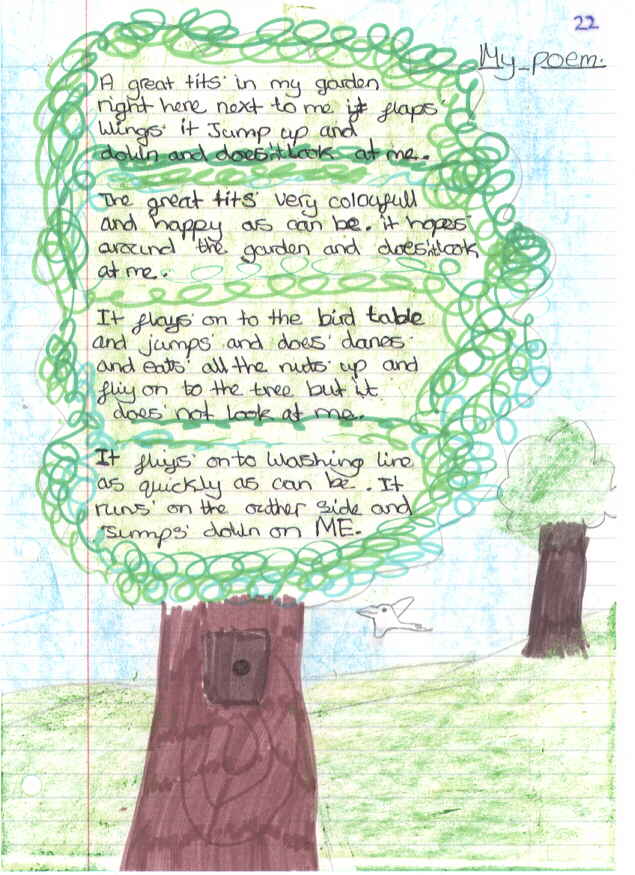 22
My poem.
A great tits in my garden
right here next to me it flaps
wings it Jump up and
down and does'nt look at me.
The great tits very colourfull
and happy as can be. it hopes
around the garden and does'nt look
at me.
It flays on to the bird table
and jumps and does danes
and eats all the nuts up and
fliy on to the tree but it
does not look at me.
It fliys onto washing line
as quickly as can be. It
runs on the outher side and
sumps down on ME.